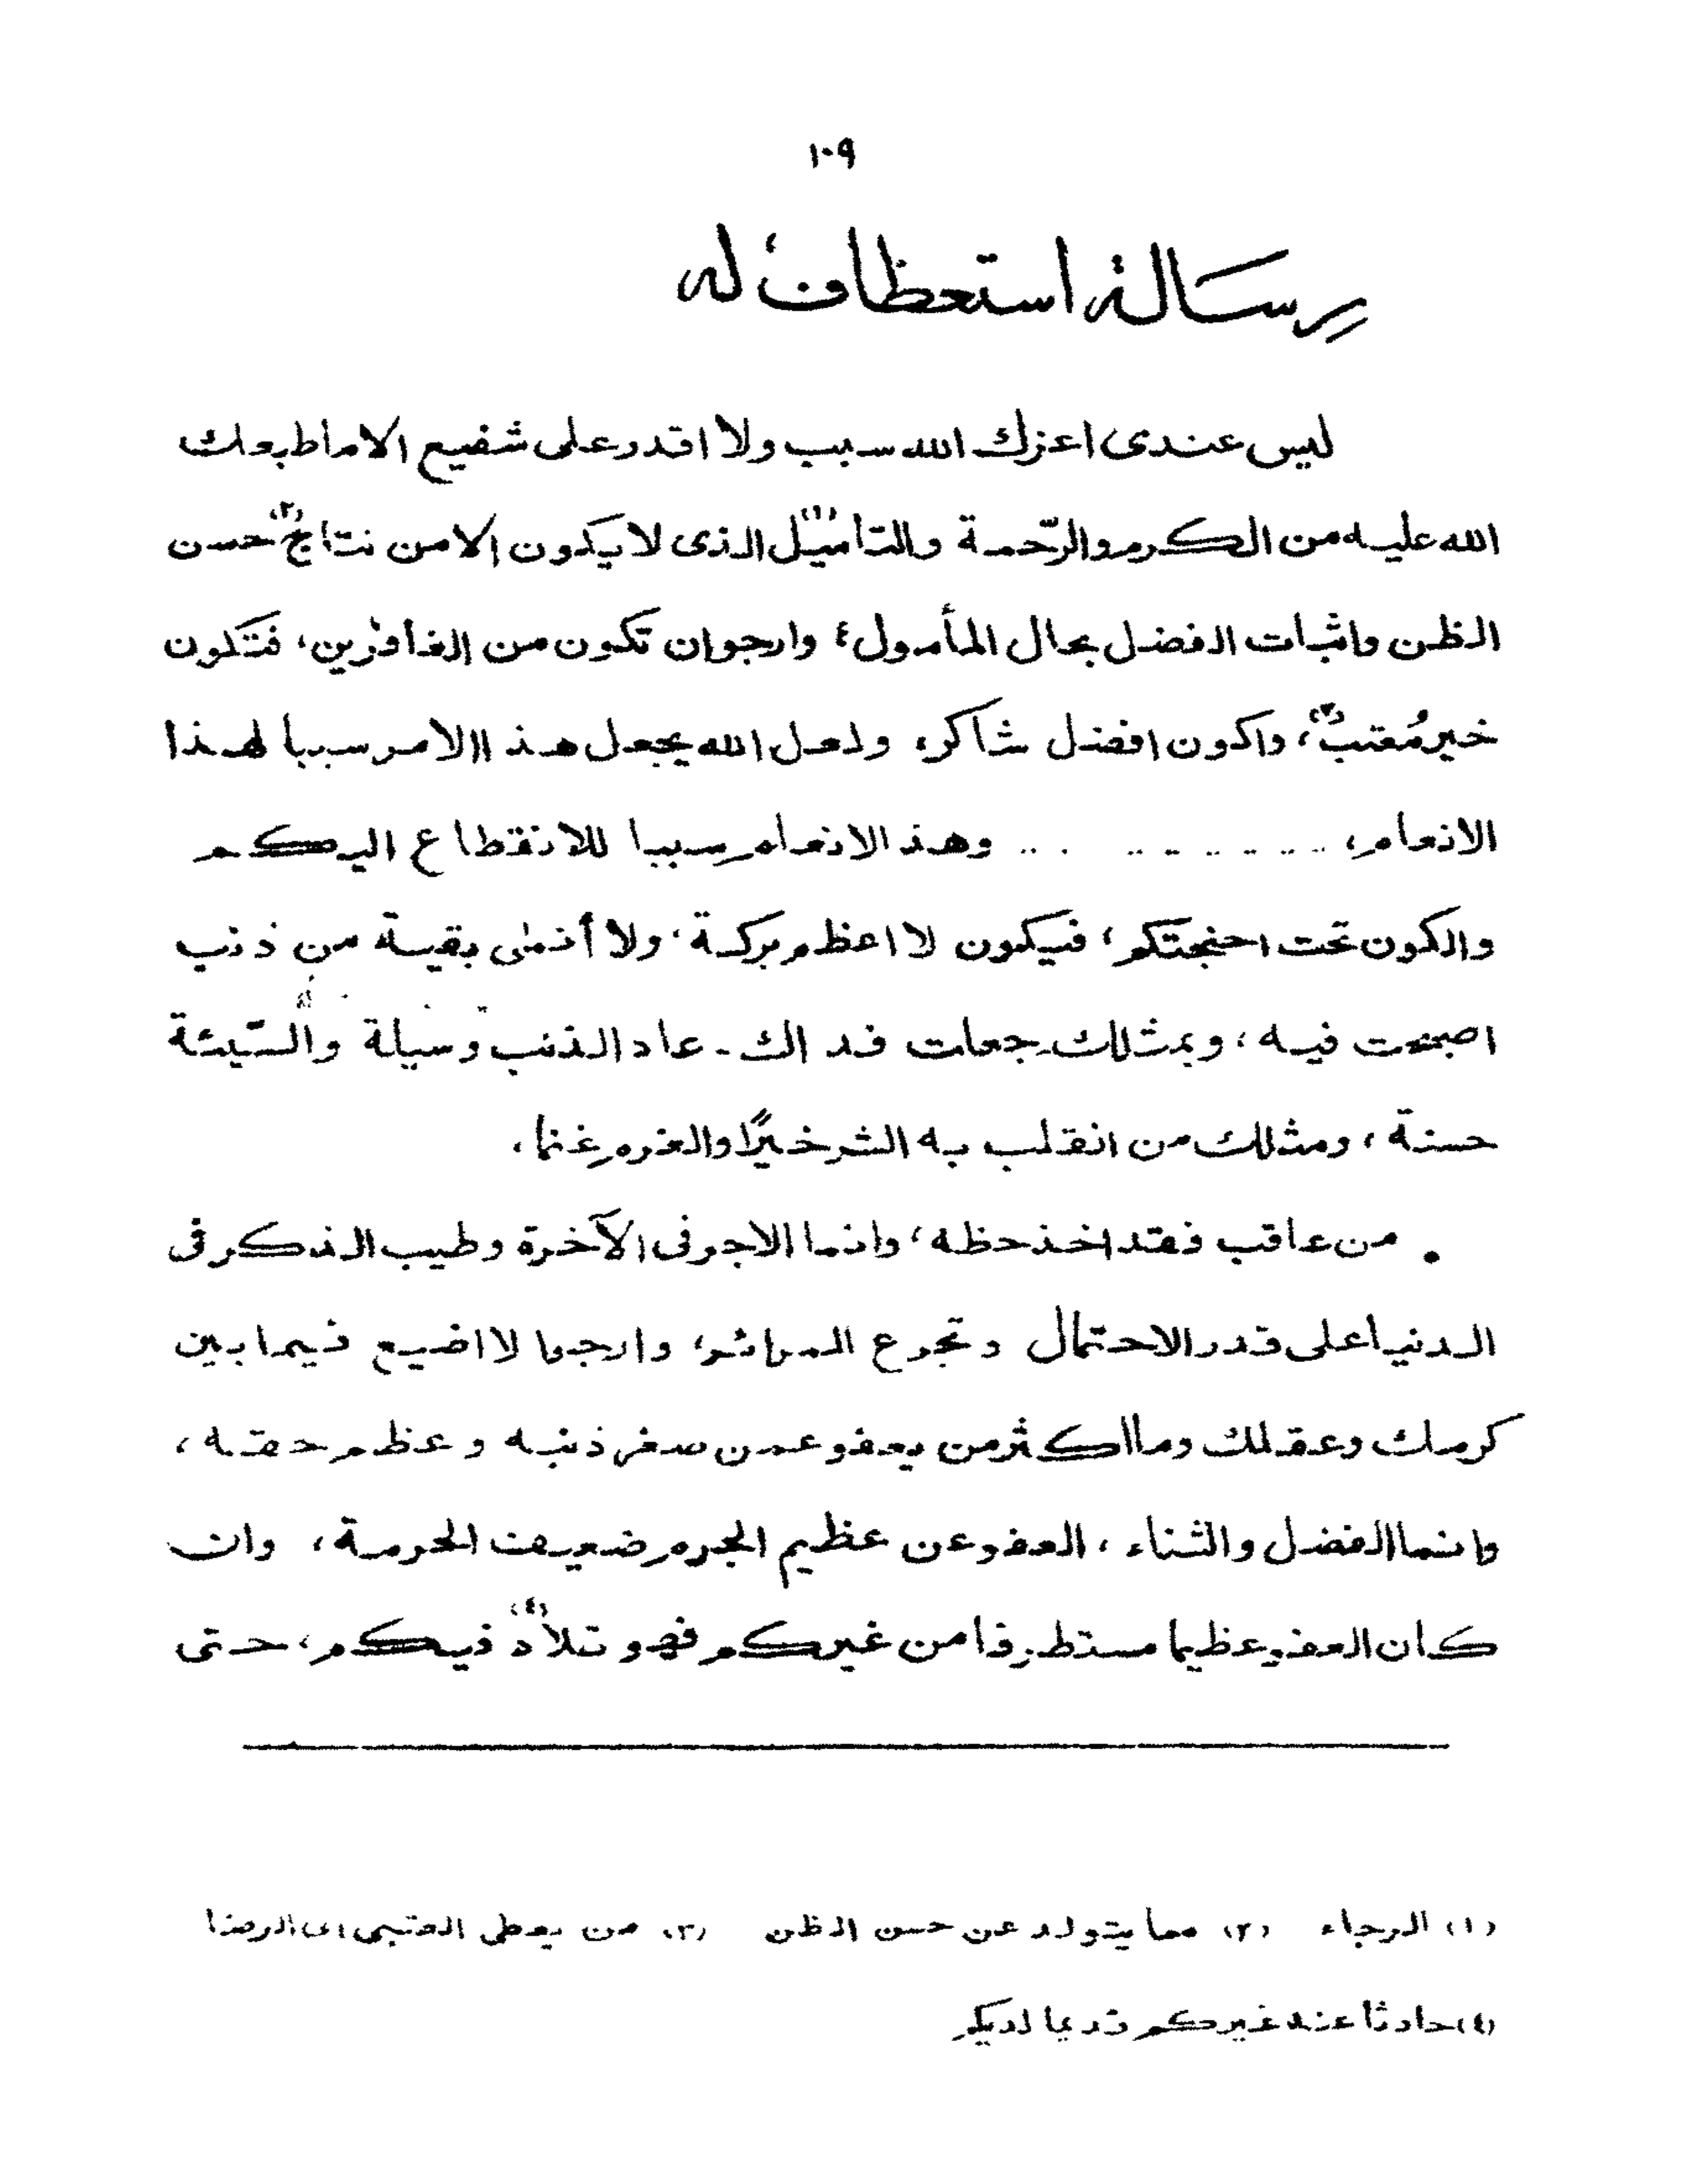 ١٠٩
رِسَالة استعطاف له
ليس عندى اعزك الله سبب ولا اقدر على شفيع الا ما طبعك
الله عليه من الكرم والرّحمة والتأميل(١) الذى لا يكون إلا من نتاج(٢) حسن
الظن واثبات الفضل بحال المأمول، وارجوان تكون من الغافرين، فتكون
خير مُعتب(٣)، واكون افضل شاكر، ولعل الله يجعل هذا الامر سببا لهذا
الانعام، .......... وهذا الانعام سببا للانقطاع اليكم
والكون تحت اجنحتكم، فيكون لا اعظم بركة، ولا أنمى بقية من ذنب
اصبحت فيه، وبمثلك جعلت فداك - عاد الذنب وسيلة والسّيئة
حسنة، ومثلك من انقلب به الشر خيرًا والغرم غنما.
• من عاقب فقد اخذ حظه، وانما الاجر فى الآخرة وطيب الذكر فى
الدنيا على قدر الاحتمال وتجرع المرائر، وارجو الا اضيع فيما بين
كرمك وعقلك وما اكثر من يعفو عمن صغر ذنبه وعظم حقه،
وانما الفضل والثناء، العفو عن عظيم الجرم ضعيف الحرمة، وان
كان العفو عظيما مستطرفا من غيركم فهو تلاد(٤) فيكم، حتى
(١) الرجاء (٢) مما يتولد عن حسن الظن (٣) من يعطى العتبى اى الرضا
(٤) حادثا عند غيركم قديما لديكم